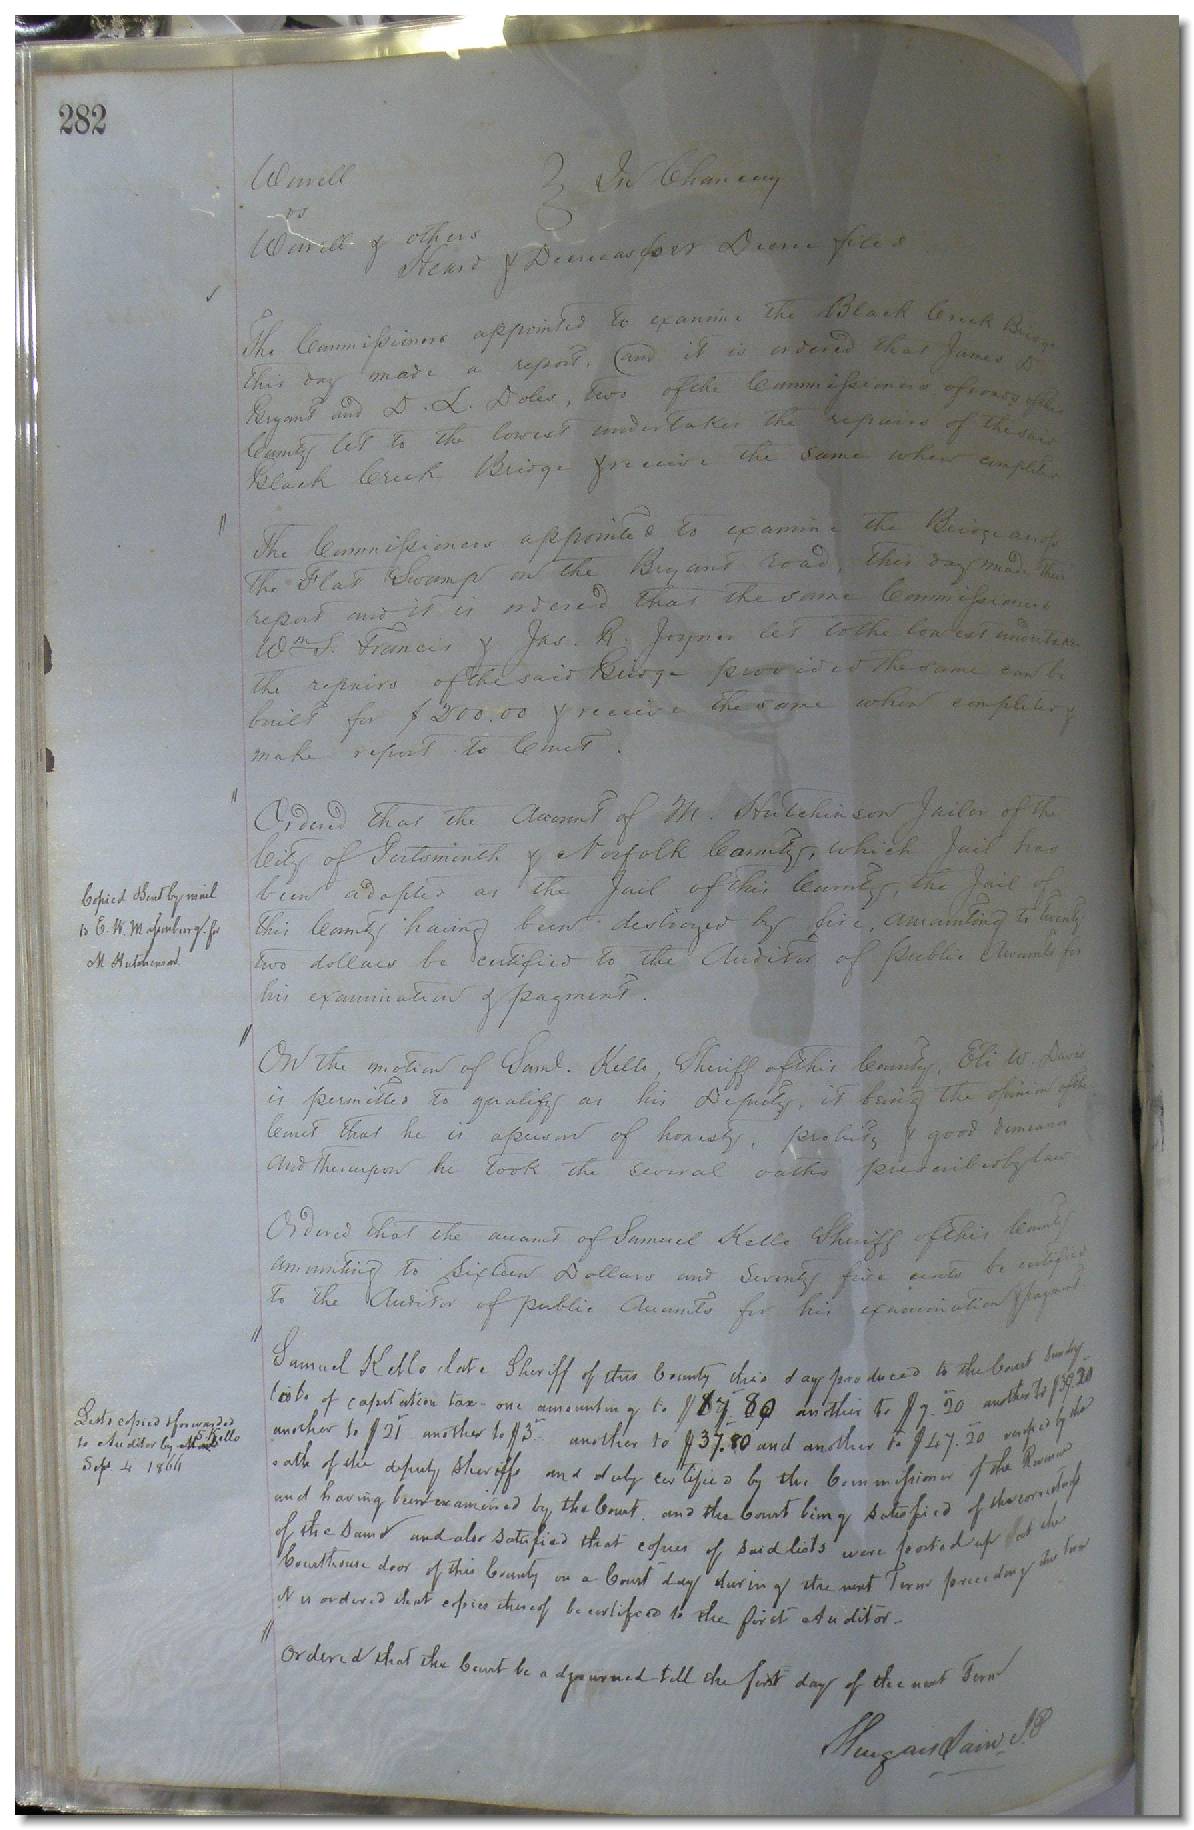 282
Worrell } In Chancery
vs
Worrell & others
Heard & Decree as per Decree filed
The Commissioners appointed to examine the Black Creek Bridge
this day made a report, and it is ordered that James D
Bryant and D. L. Doles, two of the Commissioners of roads of this
County let to the lowest undertaker the repairs of the said
Black Creek Bridge & receive the same when completed
The Commissioners appointed to examine the Bridge across
the Flat Swamp on the Bryant road, this day made their
report and it is ordered that the same Commissioners
Wm S. Francis & Jas. R. Joyner let to the lowest undertaker
the repairs of the said Bridge provided the same can be
built for $200.00 & receive the same when completed &
make report to Court.
Ordered that the Account of M. Hutchinson Jailor of the
City of Portsmouth & Norfolk County, which Jail has
been adopted as the Jail of this County, the Jail of
this County having been destroyed by fire, amounting to twenty
two dollars be certified to the Auditor of public Accounts for
his examination & payment.
Copied & sent by mail
to E. W. for
M Hutchinson
On the motion of Saml. Kello, Sheriff of this County, Eli W. Davis
is permitted to qualify as his Deputy, it being the opinion of the
Court that he is a person of honesty, probity & good demeanor
and thereupon he took the several oaths prescribed by law
Ordered that the account of Samuel Kello Sheriff of this County
amounting to Sixteen Dollars and Seventy five cents be certified
to the Auditor of public Accounts for his examination & payment
Samuel Kello late Sheriff of this County this day produced to the Court Sundry
lists of capitation tax - one amounting to $87.80 another to $7.20 another to $39.20
another to $21 another to $3 another to $37.80 and another to $47.20 verified by the
oath of the deputy Sheriffs and duly certified by the Commissioner of the Revenue
and having been examined by the Court, and the Court being satisfied of the correctness
of the same and also satisfied that copies of said lists were posted up at the
Courthouse door of this County on a Court day during the next Term preceding this Term
it is ordered that copies thereof be certified to the first Auditor.
Lists copied & forwarded
to Auditor by S Kello
Sept 4 1866
Ordered that the Court be adjourned till the first day of the next Term